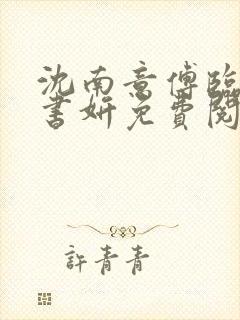 沈南意傅臨
書妍免費閱
許青青